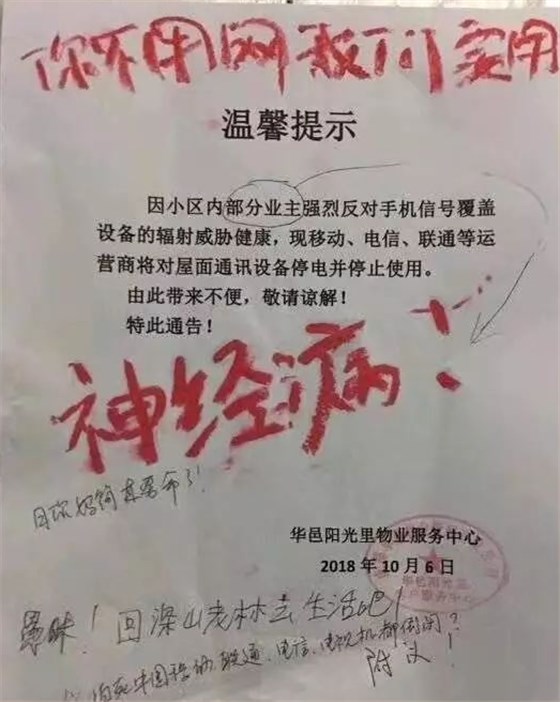 你不用网我们要用
温馨提示
因小区内部分业主强烈反对手机信号覆盖
设备的辐射威胁健康，现移动、电信、联通等运
营商将对屋面通讯设备停电并停止使用。
由此带来不便，敬请谅解！
特此通告！
神经病！
华邑阳光里物业服务中心
2018年10月6日
华邑阳光里
客户服务中心
愚昧！回深山老林去生活吧！
中国移动、联通、电信、电视机都
附议！